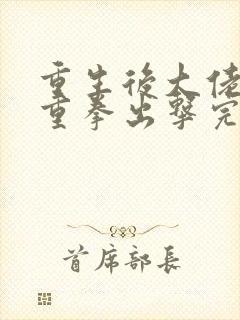 重生後大佬
重拳出擊完
首席部長